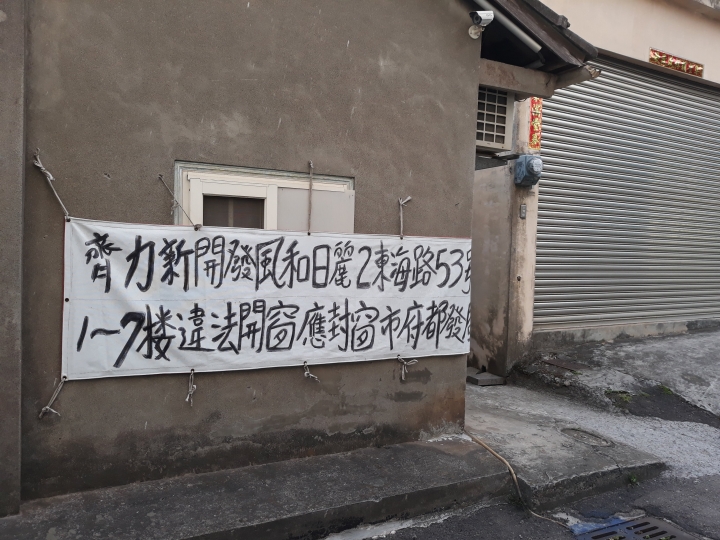 齊力新開發風和日麗2東海路53號
1~7楼違法開窗應封窗市府都發局